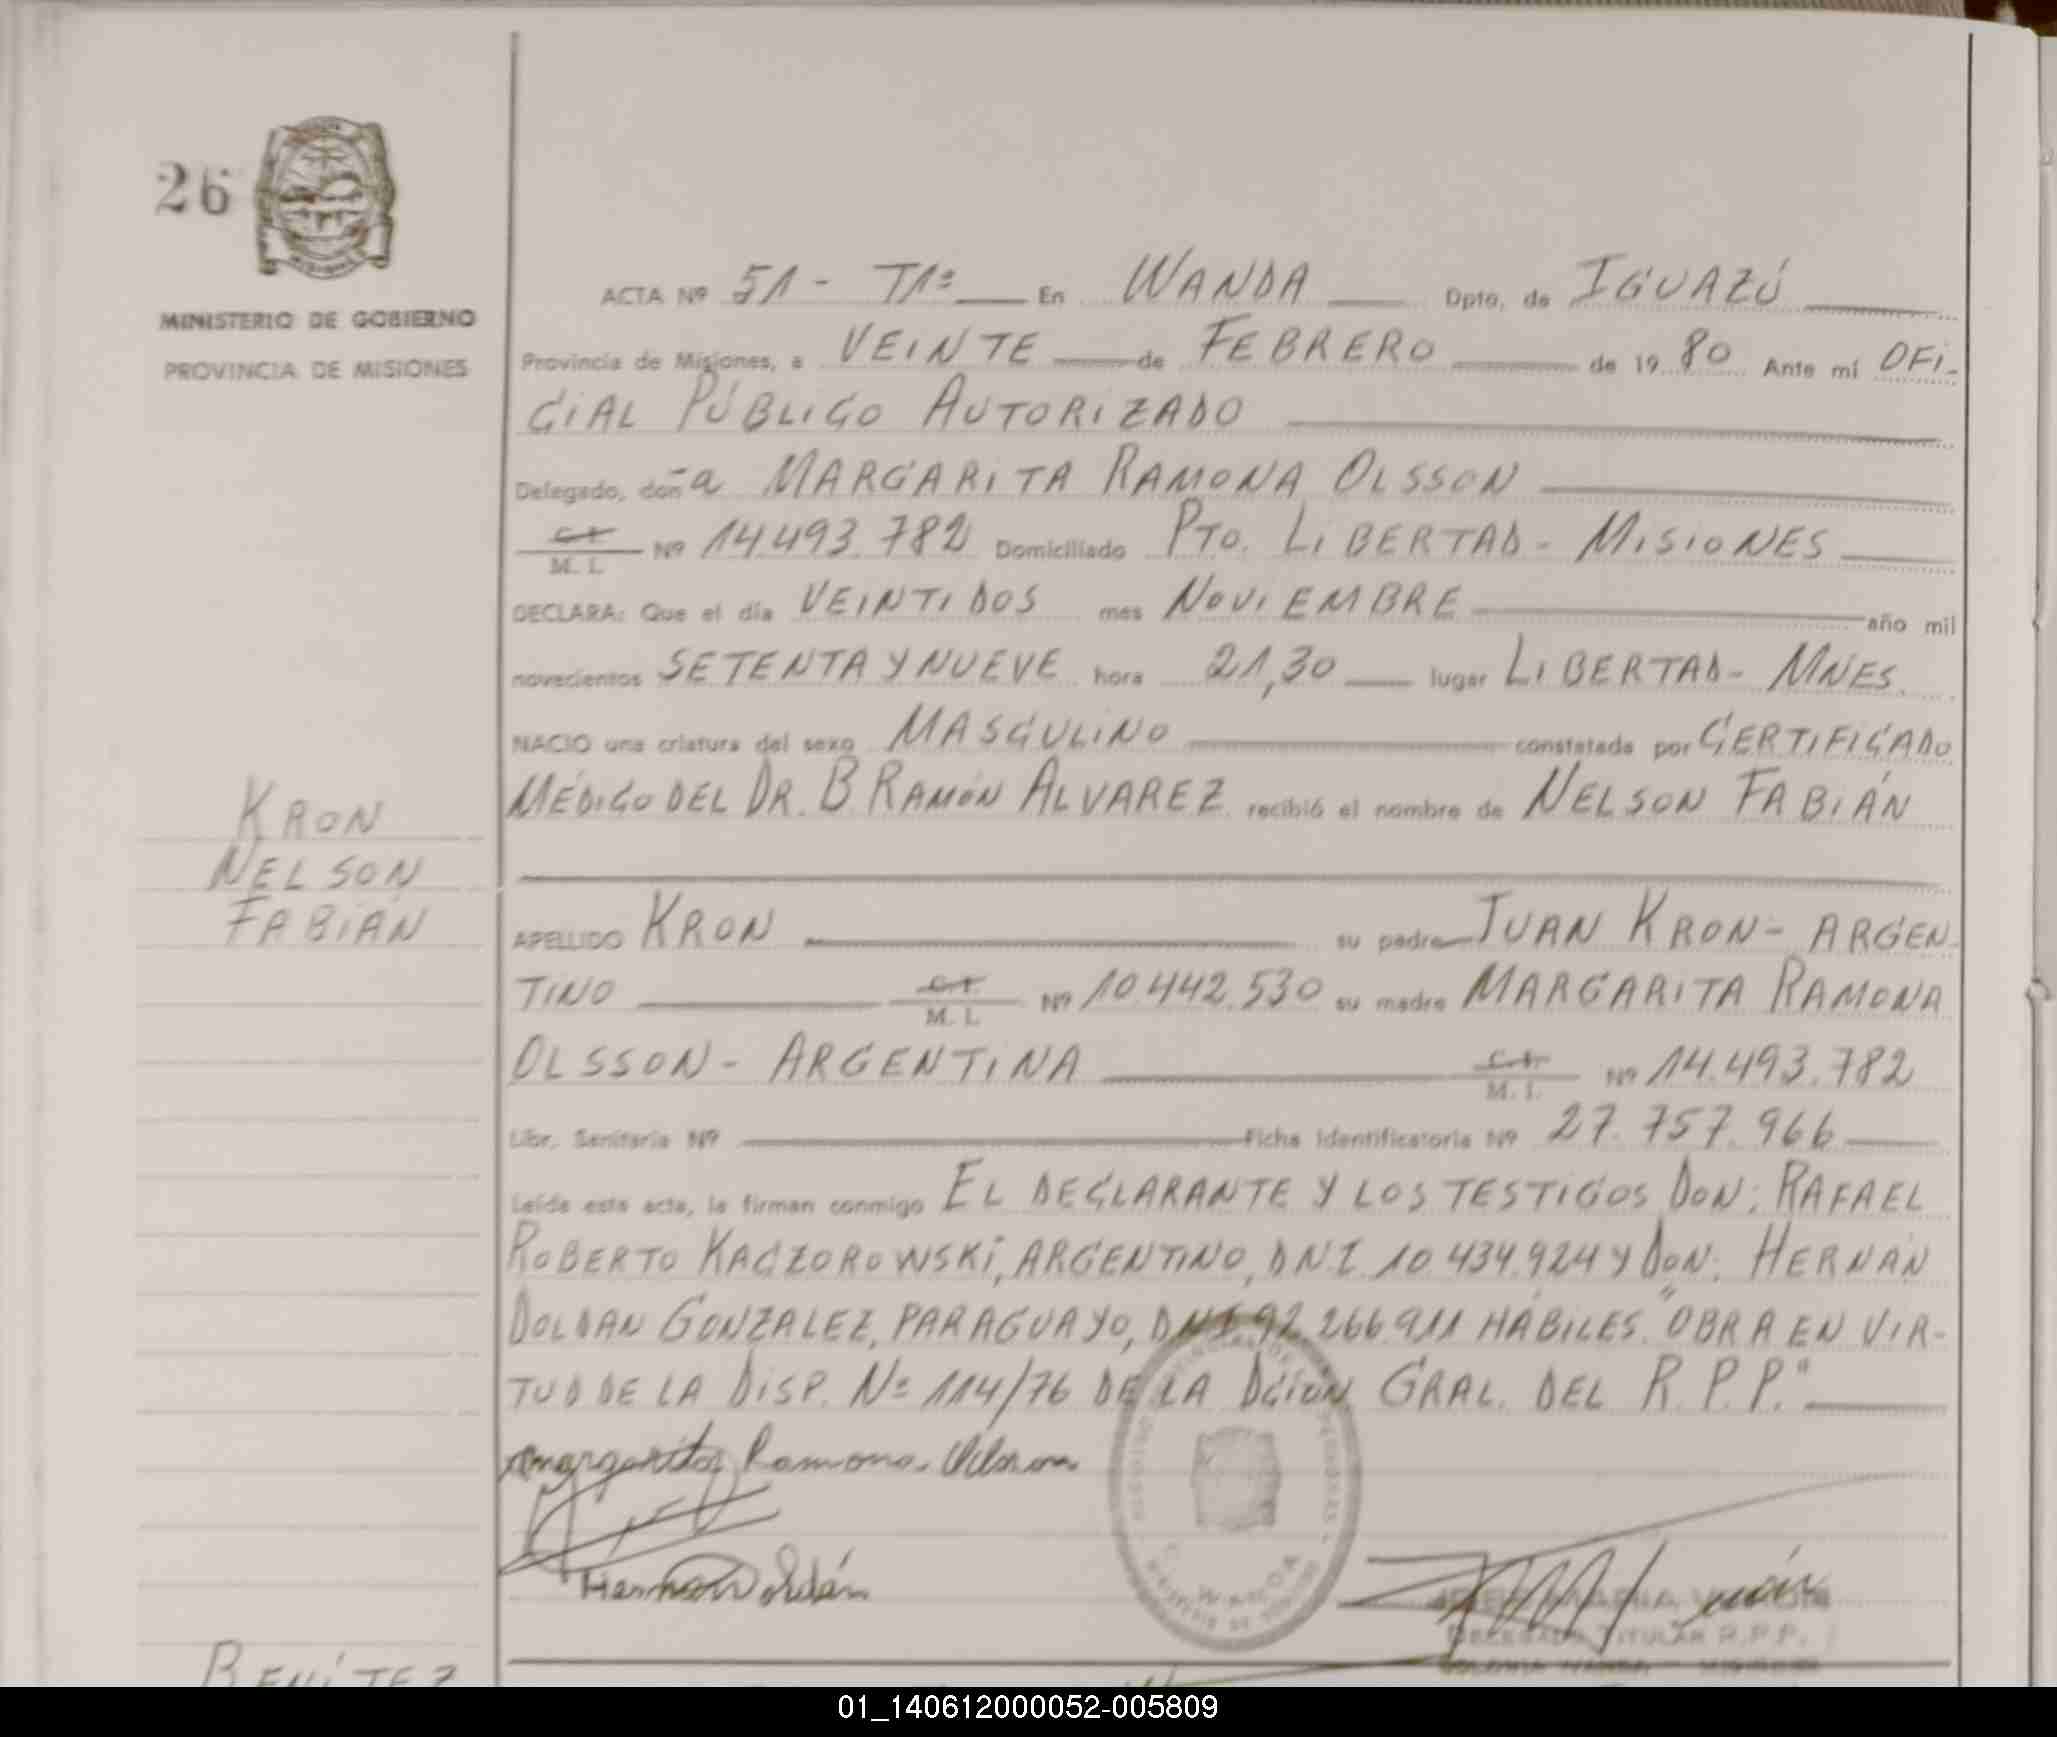 26
MINISTERIO DE GOBIERNO
PROVINCIA DE MISIONES
ACTA Nº 51 - T1º En WANDA Dpto. de IGUAZÚ
Provincia de Misiones, a VEINTE de FEBRERO de 1980 Ante mí OFI-
CIAL PÚBLICO AUTORIZADO
Delegado, doña MARGARITA RAMONA OLSSON
C.I.
M. I. Nº 14.493.782 Domiciliado PTO. LIBERTAD - MISIONES
DECLARA: Que el día VEINTIDOS mes NOVIEMBRE año mil
novecientos SETENTA Y NUEVE hora 21,30 lugar LIBERTAD - MNES.
NACIO una criatura del sexo MASCULINO constatada por CERTIFICADO
MÉDICO DEL DR. B. RAMÓN ALVAREZ recibió el nombre de NELSON FABIÁN
KRON
NELSON
FABIÁN
APELLIDO KRON su padre JUAN KRON - ARGEN-
TINO C.I. M. I. Nº 10.442.530 su madre MARGARITA RAMONA
OLSSON - ARGENTINA C.I. M. I. Nº 14.493.782
Libr. Sanitaria Nº Ficha Identificatoria Nº 27.757.966
Leída esta acta, la firman conmigo EL DECLARANTE Y LOS TESTIGOS DON: RAFAEL
ROBERTO KACZOROWSKI, ARGENTINO, DNI 10.434.924 Y DON: HERNÁN
DOLDAN GONZALEZ, PARAGUAYO, DNI 92.266.911 HÁBILES. "OBRA EN VIR-
TUD DE LA DISP. Nº 114/76 DE LA DCIÓN GRAL. DEL R.P.P."
Margarita Ramona Olsson
Hernan Doldán
WANDA
DELEGADA TITULAR R.P.P.
COLONIA WANDA - MISIONES
BENÍTEZ
01_140612000052-005809